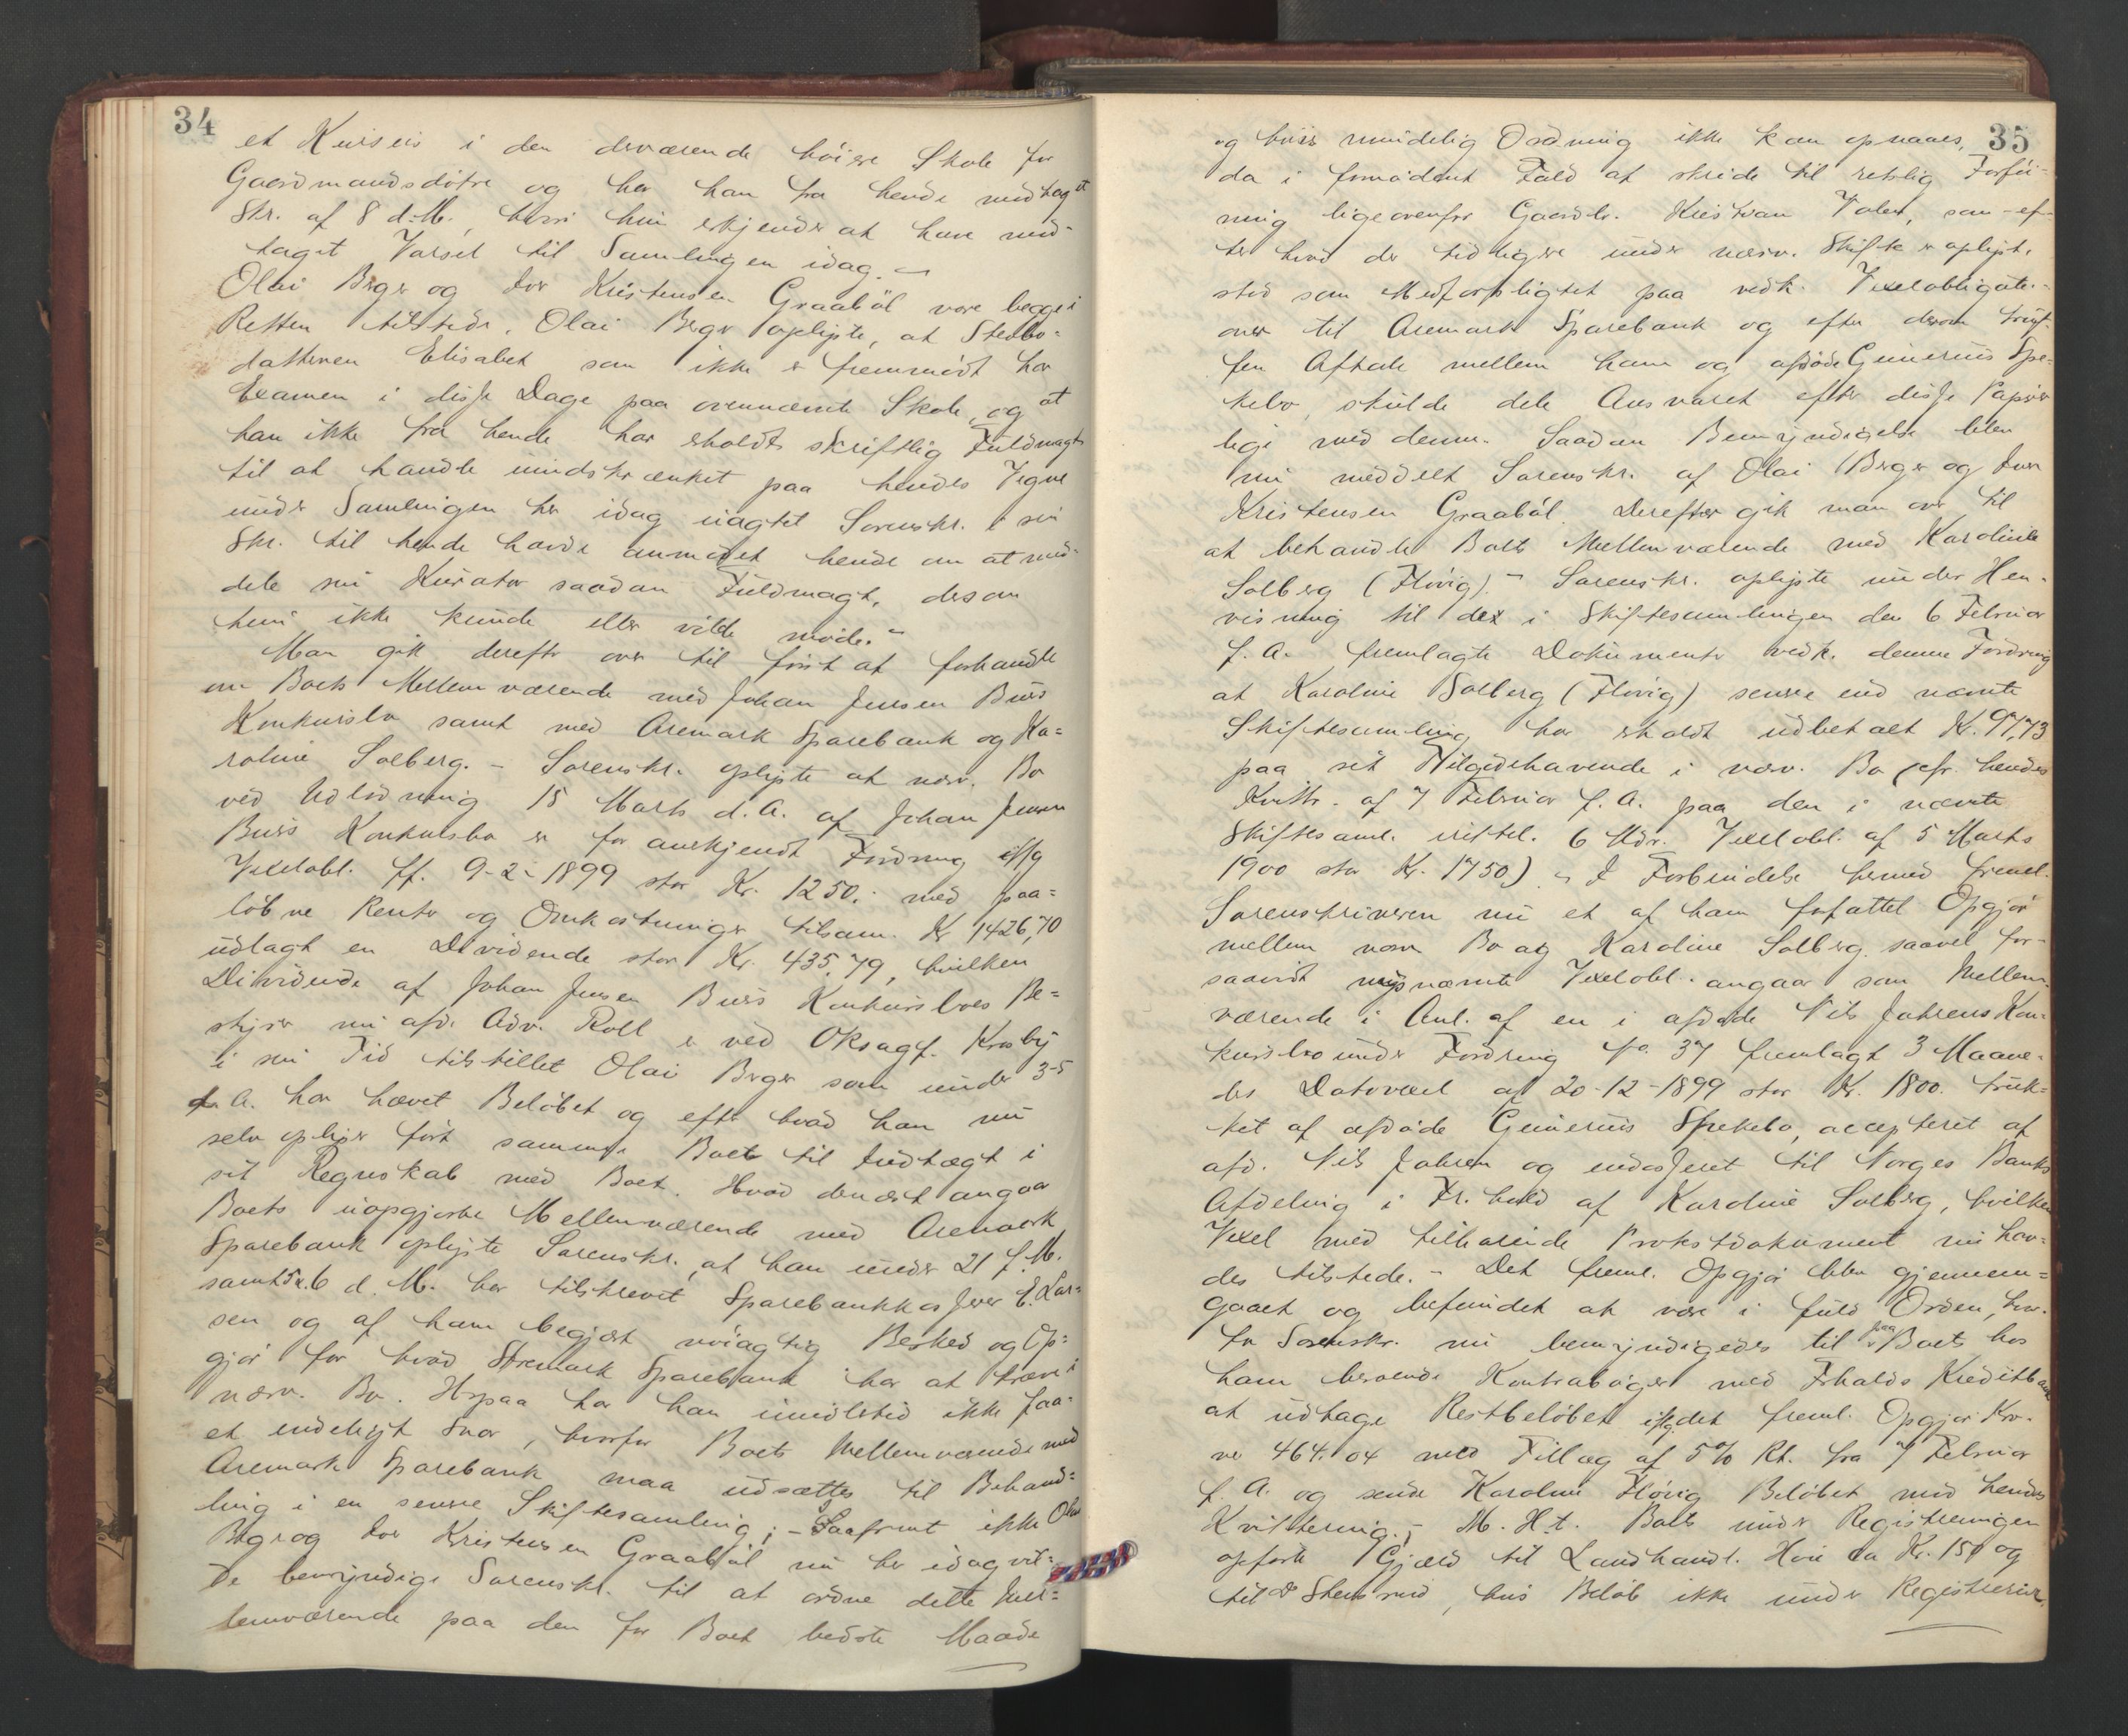 34
et Kursus i den derværende höiere Skole for
Gaardmandsdötre og har han fra hende modtaget
Skr. af 8 d. M., hvori hun erkjender at have mod-
taget Varsel til Samlingen idag. -
Olai Berger og Iver Kristensen Graaböl vare begge i
Retten tilstede. Olai Berger oplyste, at Stedbo-
datteren Elisabet som ikke er fremmödt har
Examen i disse Dage paa ovennævnte Skole, og at
han ikke fra hende har erholdt skriftlig Fuldmagt
til at handle uindskrænket paa hendes Vegne
under Samlingen her idag uagtet Sorenskr. i sin
Skr. til hende havde anmodet hende om at med-
dele sin Kurator saadan Fuldmagt, dersom
hun ikke kunde eller vilde möde. -
Man gik derefter over til först at forhandle
om Boets Mellemværende med Johan Jensen Buers
Konkursbo samt med Aremark Sparebank og Ka=
roline Solberg. - Sorenskr. oplyste at nærv. Bo
ved Udlodning 15 Marts d. A. af Johan Jensen
Buers Konkursbo er for anerkjendt Fordring iflg
Vexelobl. ff. 9-2-1899 stor Kr. 1250.- med paa=
löbne Renter og Omkostninger tilsam. Kr 1426,70
udlagt en Dividende stor Kr. 435,79, hvilken
Dividende af Johan Jensen Buers Konkursboes Be=
styrer nu afd. Adv. Roll er ved O.r.sagf. Krosby
i sin Tid tilstillet Olai Berger som under 3-5
d. A. har hævet Belöbet og efter hvad han nu
selv oplyser fört samme Boet til Indtægt i
sit Regnskab med Boet. Hvad dernæst angaar
Boets uopgjorte Mellemværende med Aremark
Sparebank oplyste Sorenskr., at han under 21 f. M.
samt 5 & 6 d. M. har tilskrevet Sparebankkasserer E. Lar=
sen og af ham begjært nöiagtig Besked og Op=
gjör for hvad Aremark Sparebank har at kræve i
nærv. Bo. Herpaa har han imidlertid ikke faa-
et endeligt Svar, hvorfor Boets Mellemværende med
Aremark Sparebank maa udsættes til Behand=
ling i en senere Skiftesamling; - Saafremt ikke Olai
Berger og Iver Kristensen Graaböl nu her idag vil=
de bemyndige Sorenskr. til at ordne dette Mel=
lemværende paa den for Boet bedste Maade
35
og hvis mindelig Ordning ikke kan opnaaes,
da i fornödent Fald at skride til retslig Forföi-
ning ligeoverfor Gaardbr. Kristian Volen, som - ef-
ter hvad der tidligere under nærv. Skifte er oplyst,
stod som Medforpligtet paa vedk. Vexelobligati-
oner til Aremark Sparebank og efter derom truf-
fen Aftale mellem ham og afdöde Gunerius Spe-
kebo, skulde dele Ansvaret efter disse Papirer
lige med denne. Saadan Bemyndigelse blev
nu meddelt Sorenskr. af Olai Berger og Iver
Kristensen Graaböl. Derefter gik man over til
at behandle Boets Mellemværende med Karoline
Solberg (Flövig). - Sorenskr. oplyste under Hen-
visning til der i Skiftesamlingen den 6 Februar
f. A. fremlagte Dokumenter vedk. denne Fordring
at Karoline Solberg (Flövig) senere end nævnte
Skiftesamling har erholdt udbetalt Kr. 97,73
paa sit Tilgodehavende i nærv. Bo (cfr. hendes
Kvitt. af 7 Februar f. A. paa den i nævnte
Skiftesaml. irettel. 6 Mdr. Vexelobl. af 5 Marts
1900 stor Kr. 1750). - I Forbindelse hermed freml.
Sorenskriveren nu et af ham forfattet Opgjör
mellem nærv. Bo og Karoline Solberg, saavel for-
saavidt nysnævnte Vexelobl. angaar som Mellem-
værende i Anl. af en i afdöde Nils Jahrens Kon-
kursbo under Fordring No. 37 fremlagt 3 Maane-
ders Datovexel af 20-12-1899 stor Kr. 1800. truk-
ket af afdöde Gunerius Spekebo, accepteret af
afd. Nils Jahren og endosseret til Norges Banks
Afdeling i Fr.hald af Karoline Solberg, hvilken
Vexel med tilhörende Protestdokument nu hav-
des tilstede. - Det freml. Opgjör blev gjennem=
gaaet og befundet at være i fuld Orden, hvor-
for Sorenskr. nu bemyndigedes til paa Boets hos
ham beroende Kontrabøger med Frhalds Kreditbank
at udtage Restbelöbet iflg. det freml. Opgjör Kro-
ner 464.04 med Tillæg af 5% Rt. fra 7 Februar
f. A. og sende Karoline Flövig Belöbet mod hendes
Kvittering. - M. H. t. Boets under Registreringen
opförte Gjæld til Landhandl. Hvii ca Kr. 150 og
til do Stensrud, hvis Belöb ikke under Registrerin-